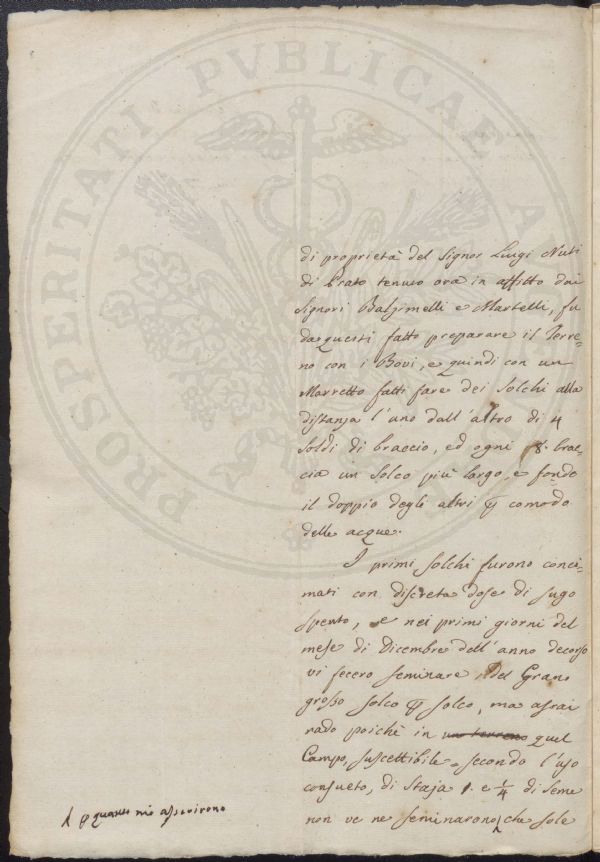 PROSPERITATI PVBLICAE AV
di proprietà del Signor Luigi Nuti
di Prato tenuto ora in affitto dai
Signori Balzimelli e Martelli, fu
da questi fatto preparare il Terre=
no con i Bovi, e quindi con un
Marretto fatti fare dei Solchi alla
distanza l'uno dall'altro di 4
soldi di braccio, ed ogni 8. brac=
cia un solco più largo, e fondo
il doppio degli altri p comodo
delle acque.
I primi Solchi furono conci=
mati con discreta dose di sugo
spento, e nei primi giorni del
mese di Dicembre dell'anno decorso
vi fecero seminare del Grano
grosso solco p solco, ma assai
rado poichè in uno terreno quel
Campo, suscettibile, secondo l'uso
consueto, di Staja 1. e 1/4 di Seme
non ve ne seminarono che sole
p quanto mi asserirono